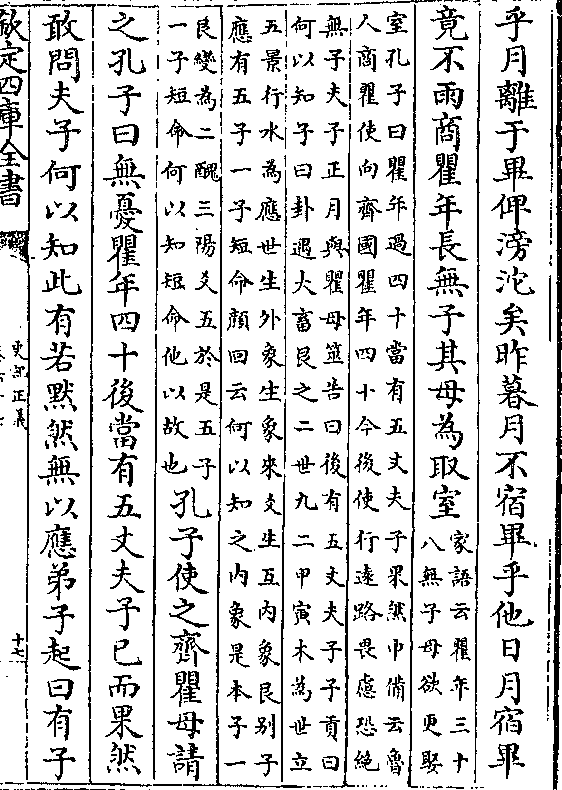 乎月離于畢俾滂沱矣昨暮月不宿畢乎他日月宿畢
竟不雨商瞿年長無子其母為取室
家語云瞿年三十
八無子母欲更娶
室孔子曰瞿年過四十當有五丈夫子果然中備云魯
人商瞿使向齊國瞿年四十今後使行遠路畏慮恐絕
無子夫子正月與瞿母筮告曰後有五丈夫子子貢曰
何以知子曰卦遇大畜艮之二世九二甲寅木為世立
五景行水為應世生外象生象來爻生互內象艮別子
應有五子一子短命顔回云何以知之內象是本子一
艮變為二醜三陽爻五於是五子
一子短命何以知短命他以故也
孔子使之齊瞿母請
之孔子曰無憂瞿年四十後當有五丈夫子已而果然
敢問夫子何以知此有若黙然無以應弟子起曰有子
欽定四庫全書
史記正義
十七